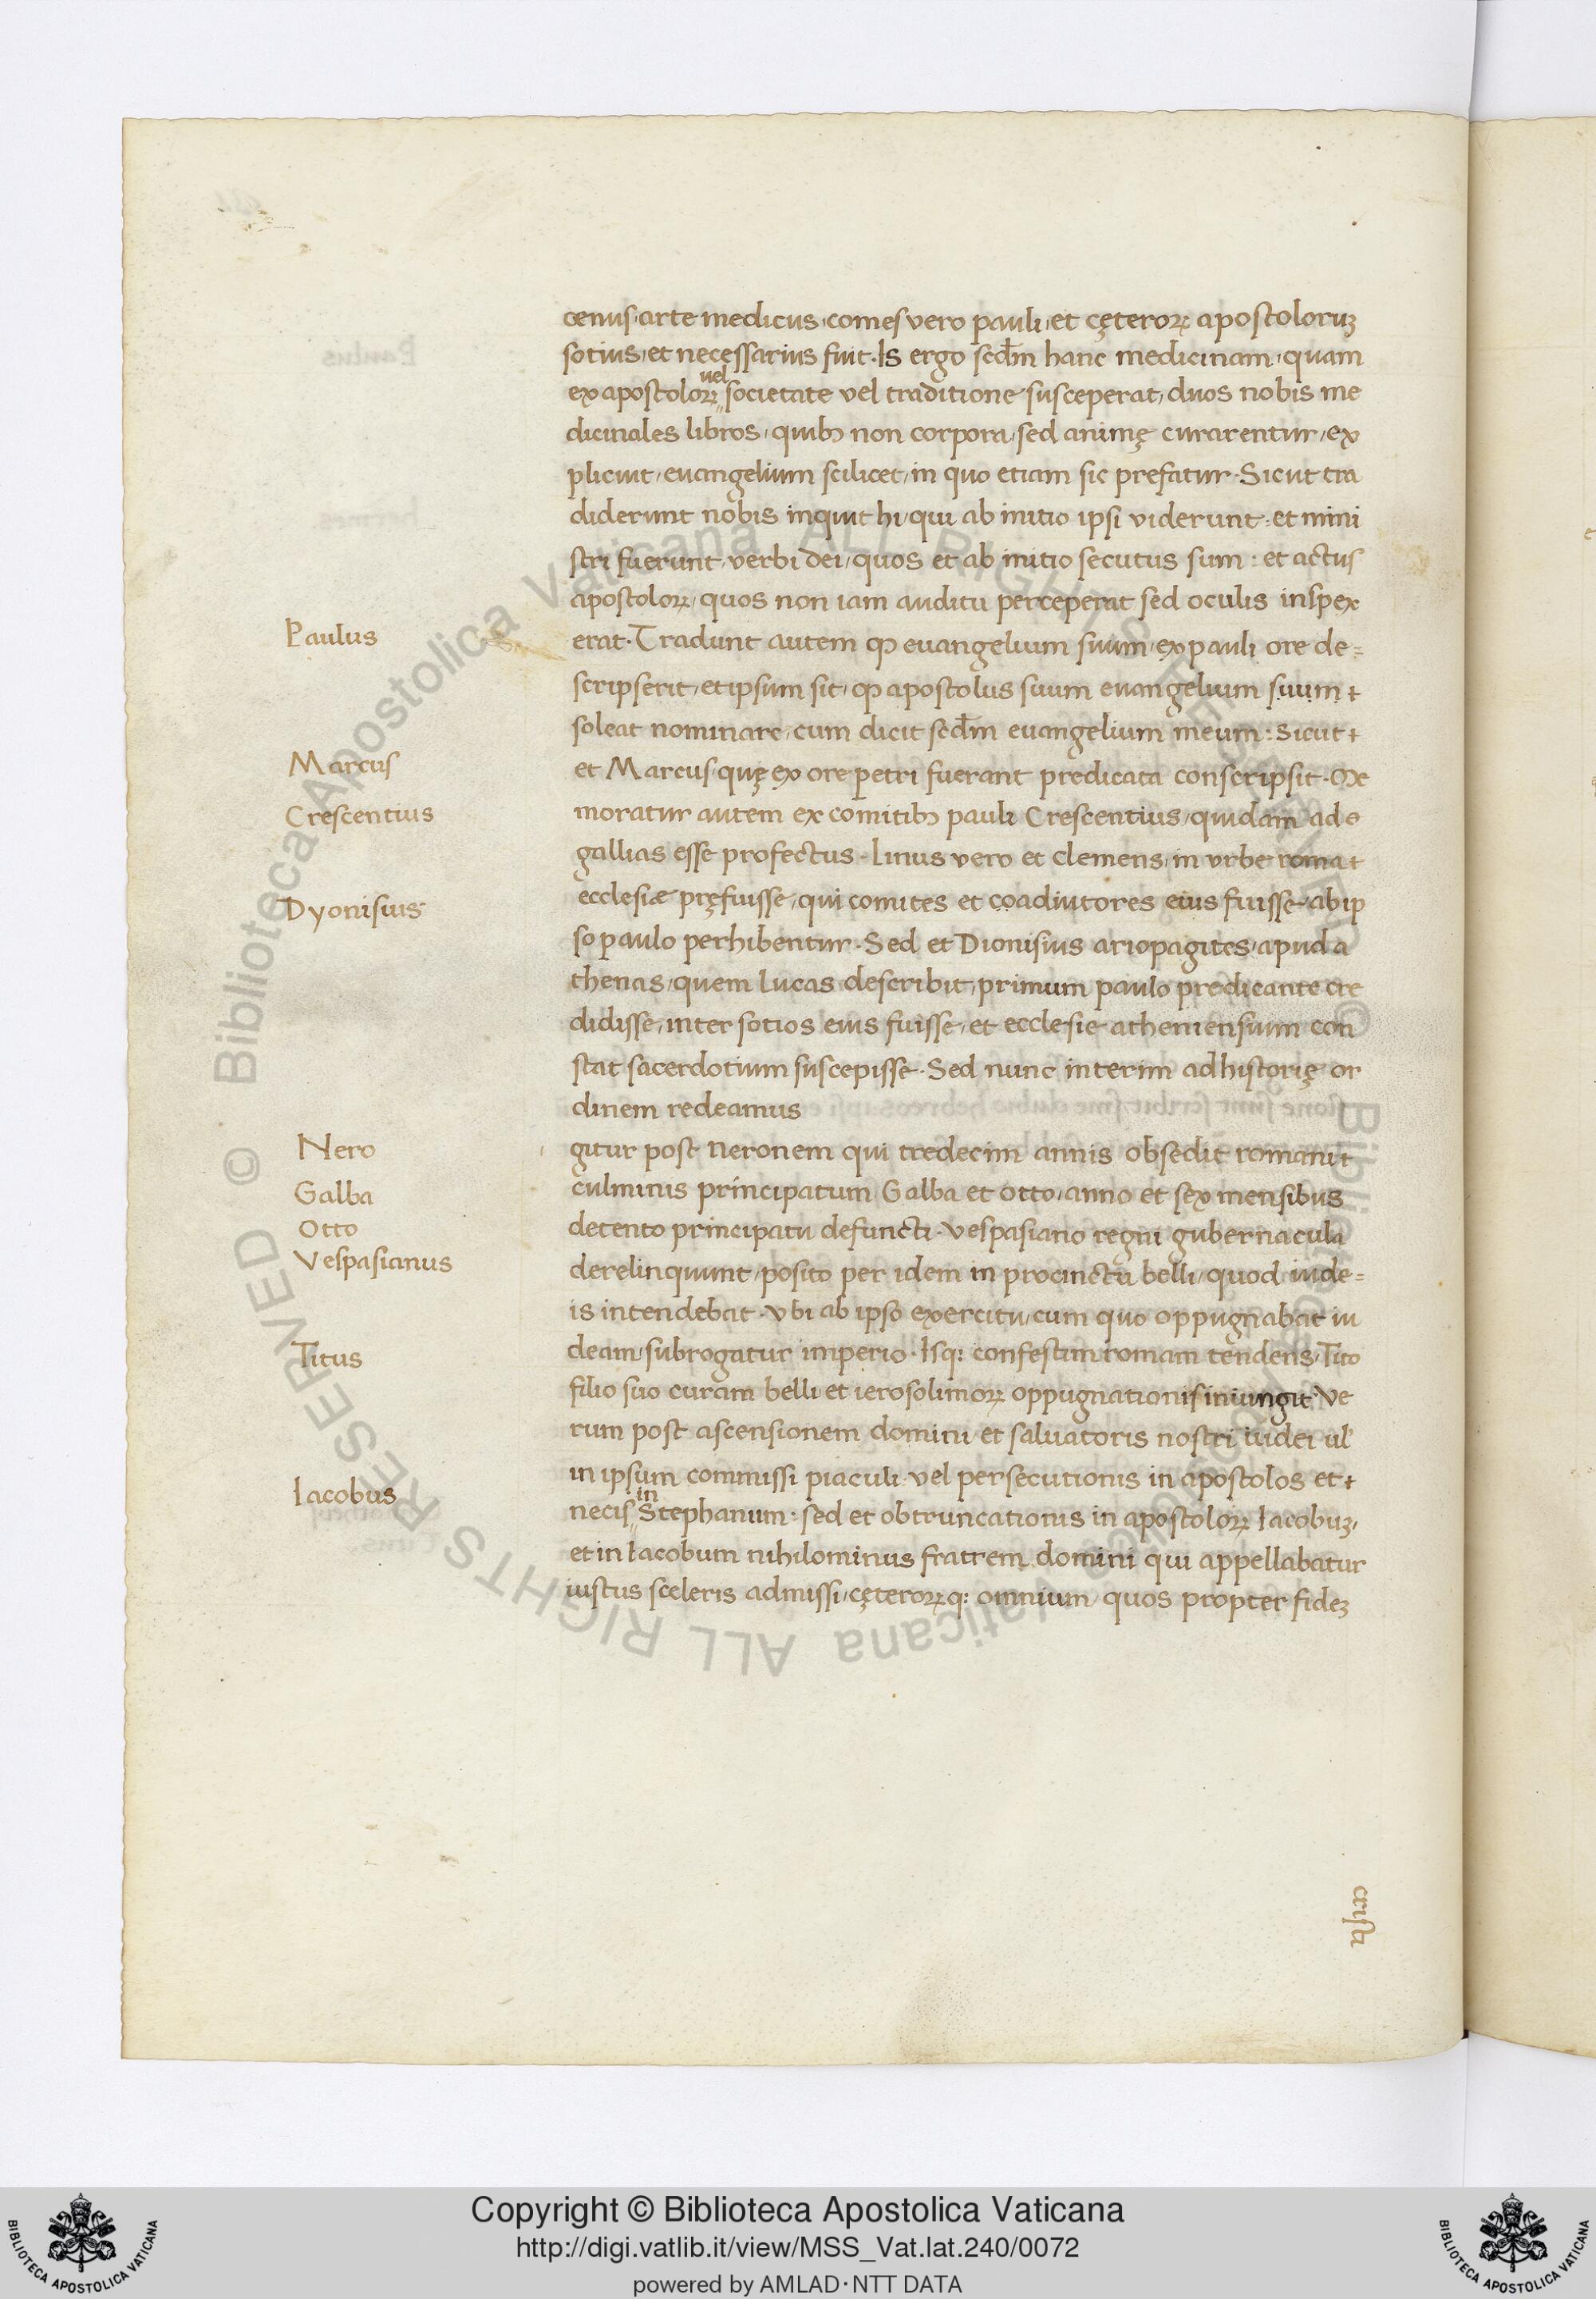 cenus, arte medicus, comes vero pauli, et cęteroꝝ apostoloruꝫ
sotius, et necessarius fuit. Is ergo secd̄m hanc medicinam, quam
uel
ex apostoloꝝ societate vel traditione susceperat, duos nobis me
dicinales libros, quibꝫ non corpora, sed animę curarentur, ex
plicuit, euangelium scilicet, in quo etiam sic prefatur. Sicut tra
diderunt nobis inquit hi, qui ab initio ipsi viderunt, et mini
stri fuerunt, verbi dei, quos et ab initio secutus sum: et actus
apostoloꝝ, quos non iam auditu perceperat sed oculis inspex
Paulus
erat. Tradunt autem ꝙ euangelium suum, ex pauli ore de=
scripserit, et ipsum sit, ꝙ apostolus suum euangelium suum
soleat nominare, cum dicit secd̄m euangelium meum: Sicut
Marcus
et Marcus, quę ex ore petri fuerant predicata conscripsit. Me
Crescentius
moratur autem ex comitibꝫ pauli Crescentius, quidam ad
gallias esse profectus. Linus vero et clemens, in vrbe roma
Dyonisius
ecclesiæ pręfuisse, qui comites et coadiutores eius fuisse ab ip
so paulo perhibentur. Sed et Dionisius ariopagites, apud a
thenas, quem lucas describit, primum paulo predicante cre
didisse, inter sotios eius fuisse, et ecclesie atheniensium con
stat sacerdotium suscepisse. Sed nunc interim ad historię or
dinem redeamus
Nero
gitur post neronem qui tredecim annis obsedit romani
Galba
culminis principatum Galba et otto, anno et sex mensibus
Otto
detento principatu defuncti. vespasiano regni gubernacula
Vespasianus
derelinquunt, posito per idem in procinctu belli, quod iude=
is intendebat. vbi ab ipso exercitu, cum quo oppugnabat iu
Titus
deam, subrogatur imperio. Isq: confestim romam tendens, Tito
filio suo curam belli et ierosolimoꝝ oppugnationis iniungit. Ve
rum post ascensionem domini et saluatoris nostri iudei ul'
in ipsum commissi piaculi vel persecutionis in apostolos et
Iacobus
in
necis Stephanum: sed et obtruncationis in apostoloꝝ Iacobuꝫ,
et in Iacobum nihilominus fratrem domini qui appellabatur
iustus sceleris admissi, cęteroꝝq: omnium quos propter fideꝫ
cristi
Copyright © Biblioteca Apostolica Vaticana
http://digi.vatlib.it/view/MSS_Vat.lat.240/0072
powered by AMLAD·NTT DATA
© Biblioteca Apostolica Vaticana ALL RIGHTS RESERVED
© Biblioteca Apostolica Vaticana ALL RIGHTS RESERVED
BIBLIOTECA APOSTOLICA VATICANA
BIBLIOTECA APOSTOLICA VATICANA